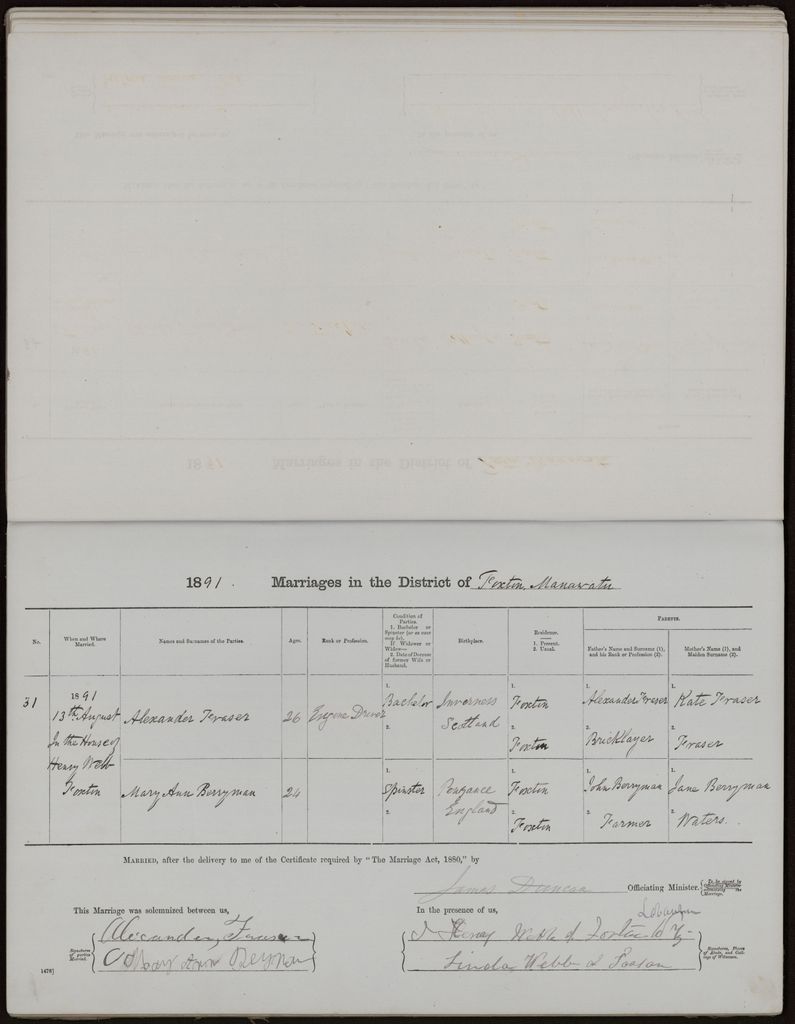 1891. Marriages in the District of Foxton, Manawatu
No.
When and Where Married.
Names and Surnames of the Parties.
Ages.
Rank or Profession.
Condition of Parties.
1. Bachelor or Spinster (or as case may be). If Widower or Widow—
2. Date of Decease of former Wife or Husband.
Birthplace.
Residence.
1. Present.
2. Usual.
PARENTS.
Father's Name and Surname (1), and his Rank or Profession (2).
Mother's Name (1), and Maiden Surname (2).
31
1891
13th August
In the House of
Henry Webb
Foxton
Alexander Fraser
26
Engine Driver
1. Bachelor
2.
Inverness
Scotland
1. Foxton
2. Foxton
1. Alexander Fraser
2. Bricklayer
1. Kate Fraser
2. Fraser
Mary Ann Berryman
24
1. Spinster
2.
Penzance
England
1. Foxton
2. Foxton
1. John Berryman
2. Farmer
1. Jane Berryman
2. Waters.
MARRIED, after the delivery to me of the Certificate required by "The Marriage Act, 1880," by
James Duncan Officiating Minister. { To be signed by Officiating Minister the Marriage.
This Marriage was solemnized between us,
Signatures of parties Married. { Alexander Fraser
Mary Ann
In the presence of us,
Henry Webb of
Linda Webb of
Signatures, Places of Abode, and Callings of Witnesses.
1478]